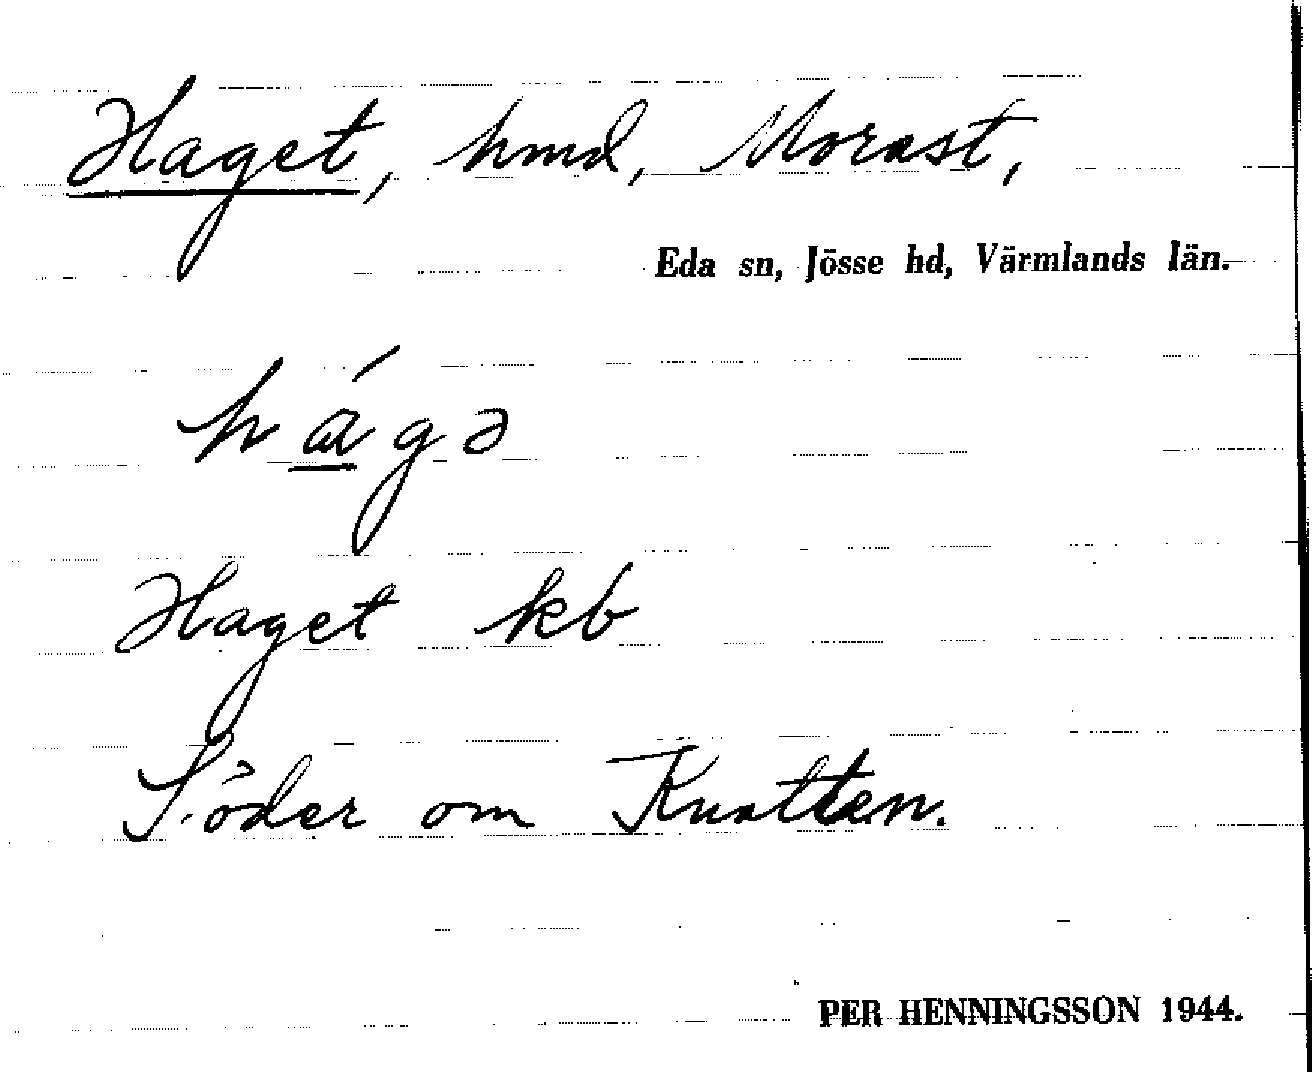 Haget, hmd, Morast,
Eda sn, Jösse hd, Värmlands län.
há̱gə
Haget kb
Söder om Knatten.
PER HENNINGSSON 1944.